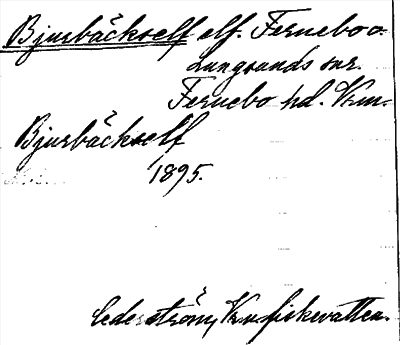 Bjurbäckself elf. Fernebo o.
Lungsunds snr.
Fernebo hd. Vrm.
Bjurbäckself
1895.
Cederström, Vrm fiskevatten.